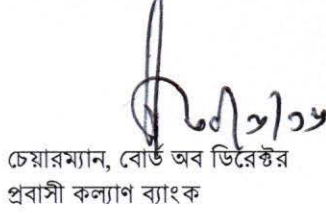 চেয়ারম্যান, বোর্ড অব ডিরেক্টর
প্রবাসী কল্যাণ ব্যাংক